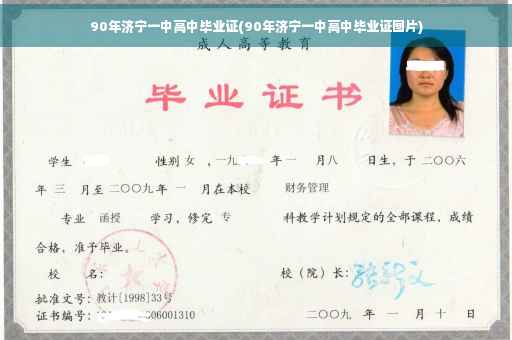 90年济宁一中高中毕业证(90年济宁一中高中毕业证图片)
成人高等教育
毕业证书
学生 性别 女 ,一九 年 一 月 八 日生,于 二〇〇六
年 三 月至 二〇〇九 年 一 月在本校 财务管理
专业 函授 学习,修完 专 科教学计划规定的全部课程,成绩
合格,准予毕业。
校 名: 校(院)长:
批准文号:教计[1998]33号
证书编号: 06001310 二〇〇九 年 一 月 十 日